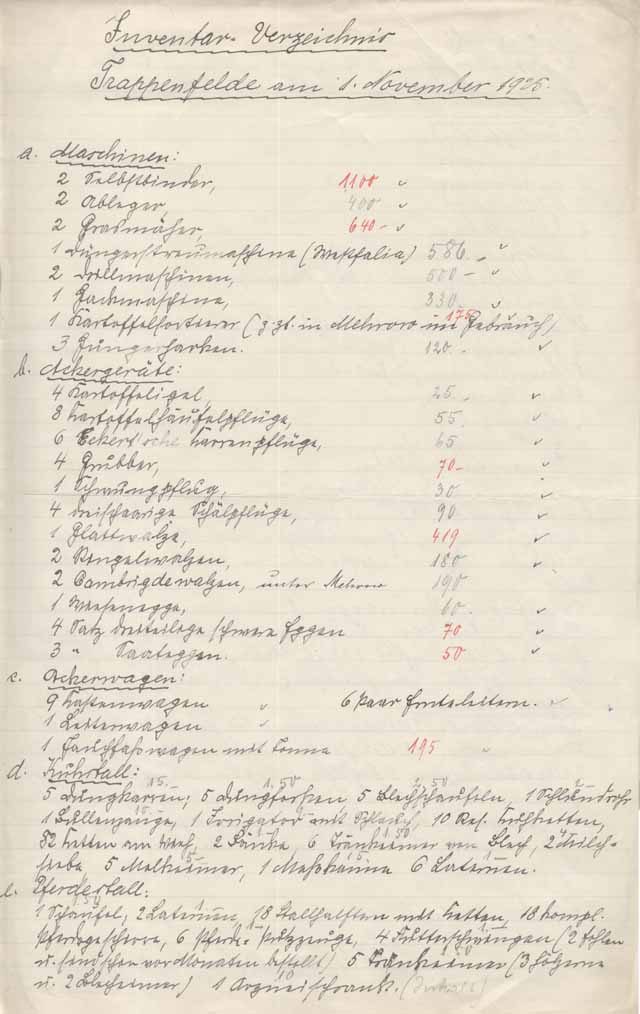 Inventar-Verzeichnis
Trappenfelde am 1. November 1925.
a. Maschinen:
2 Selbstbinder, 1100 ✓
2 Ableger, 400 ✓
2 Grasmäher, 640- ✓
1 Düngerstreumaschine (Westfalia) 586 ✓
2 Drillmaschinen, 500- ✓
1 Hackmaschine, 330 ✓
1 Kartoffelsortierer (z. Zt. in Mehrow im Gebrauch) 175
3 Hungerharken. 120. ✓
b. Ackergeräte:
4 Kartoffeligel, 25. ✓
8 Kartoffelhäufelpflüge, 55. ✓
6 Eckert'sche Karrenpflüge, 65 ✓
4 Grubber, 70- ✓
1 Schwungpflug, 30 ✓
4 dreischaarige Schälpflüge, 90. ✓
1 Glattwalze, 419 ✓
2 Ringelwalzen, 180 ✓
2 Cambrigdewalzen, unter Mehrow 190
1 Wiesenegge, 60. ✓
4 Satz dreiteilige schwere Eggen 70 ✓
3 " Saateggen. 50 ✓
c. Ackerwagen:
9 Kastenwagen ✓ 6 Paar Ernteleitern. ✓
1 Leiterwagen ✓
1 Jauchefaßwagen mit Tonne 195 ✓
d. Kuhstall:
5 Dungkarren, 15. 5 Dungforken, 1.50 5 Blechschaufeln, 1 Schlundrohr
1 Bullenzange, 1 Irrigator mit Schlauch, 10 Res. Kuhketten,
82 Ketten am Vieh, 2 6 Tränkeimer von Blech, 2 Milch-
siebe, 5 Melkeimer, 1 Meßkanne 6 Laternen.
e. Pferdestall:
1 Schaufel, 2 Laternen, 18 Stallhalftern mit Ketten, 18 kompl.
Pferdegeschirre, 6 Pferde-Putzzeuge, 4 Futterschwingen (2 fehlen
u. sind schon vor Monaten bestellt) 5 Tränkeimer (3 hölzerne
u. 2 Blecheimer) 1 Arzneischrank.